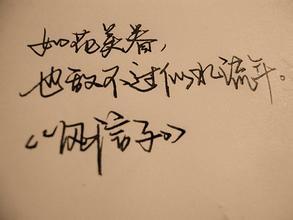 如花美眷，
也敌不过似水流年。